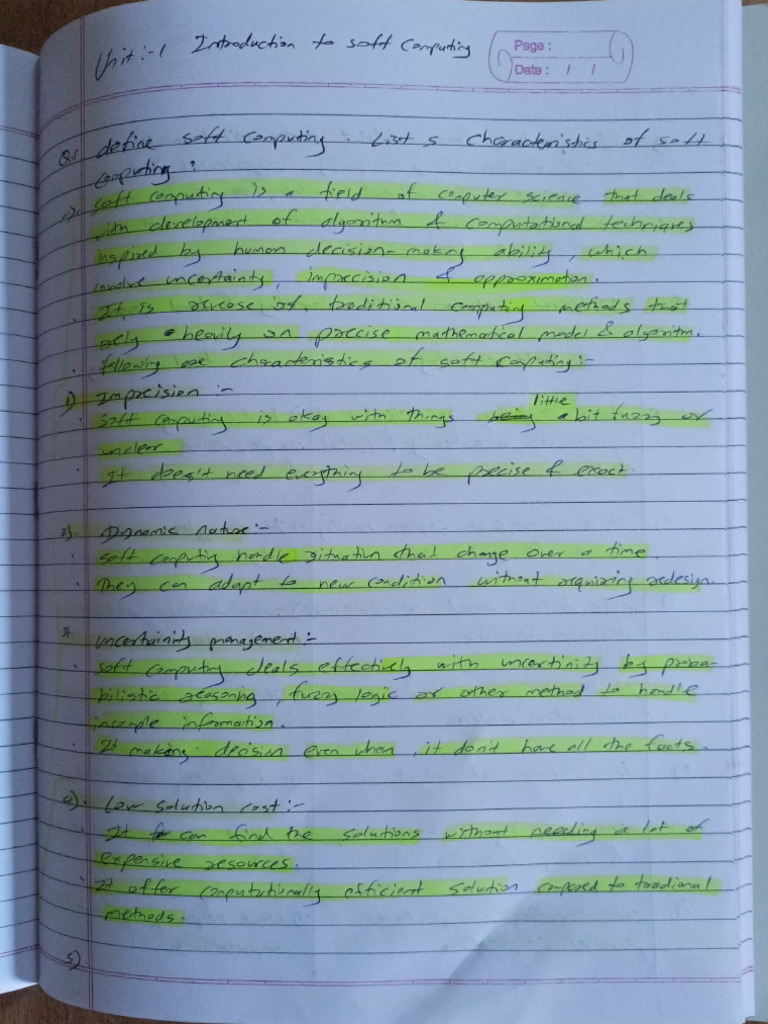 Unit :- 1 Introduction to soft Computing
Page :
Date : / /
Q.1 define soft computing. List 5 characteristics of soft
computing?
→ soft computing is a field of computer science that deals
with development of algorithm & computational techniques
inspired by human decision-making ability, which
involve uncertainty, imprecision & approximation.
· It is reverse of traditional computing methods that
rely heavily on precise mathematical model & algorithm.
· following are characteristics of soft computing:-
1) Imprecision :-
· Soft computing is okay with things little a bit fuzzy or
unclear
· It doesn't need everything to be precise & exact.
2). Dynamic nature:-
· soft computing handle situation that change over a time.
· They can adapt to new condition without requiring redesign.
3). uncertainity management:-
· soft computing deals effectively with uncertinity by proba-
bilistic reasoning, fuzzy logic or other method to handle
incomple information.
· It making decision even when, it don't have all the facts.
4). Low solution cost:-
· It can find the solutions without needing a lot of
expensive resources.
· It offer computationally efficient solution compared to tradional
methods.
5)